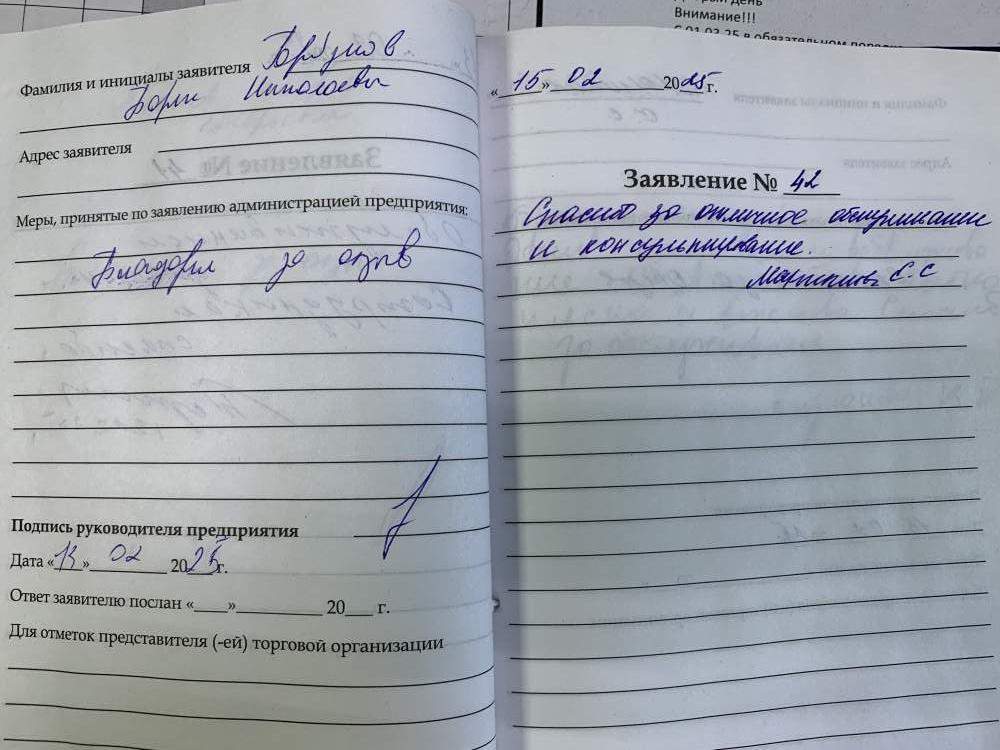 Внимание!!!
С 01.03.25 в обязательном порядке
Фамилия и инициалы заявителя
Николаевы
Адрес заявителя
Меры, принятые по заявлению администрацией предприятия:
Благодарим за отзыв
Подпись руководителя предприятия
Дата «13» 02 2025г.
Ответ заявителю послан «    »            20    г.
Для отметок представителя (-ей) торговой организации
«15» 02 2025г.
Заявление № 42
Спасибо за отличное обслуживание
и консультирование.
С.С